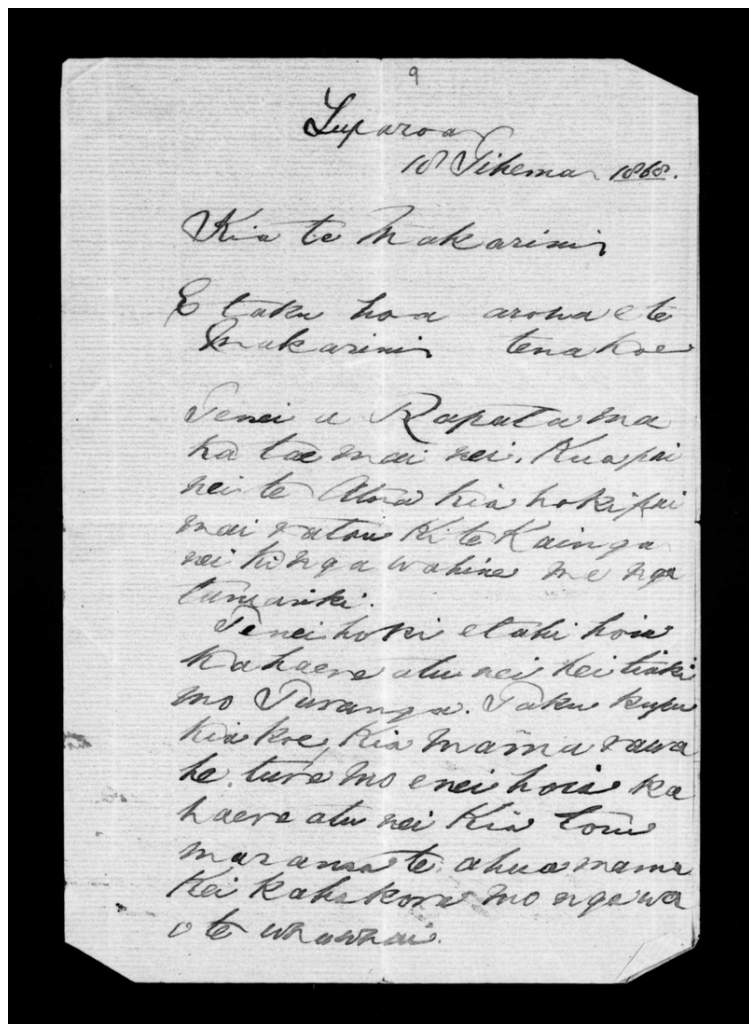 9
Tuparoa
18 Tihema 1868.
Kia te Makarini
E taku hoa aroha e te
Makarini tena koe
Tenei a Rapata ma
ka tae mai nei. Kua pai
nei te Atua kia hoki pai
mai ratou ki te Kainga
nei ki nga wahine me nga
tamariki.
Tenei hoki etahi hoia
ka haere atu nei hei tiaki
mo Turanga. Taku kupu
kia koe, Kia mama rawa
he ture mo enei hoia ka
haere atu nei Kia tou
maranga te ahua mama
Kei kaha kore mo nga wa
o te whawhai.